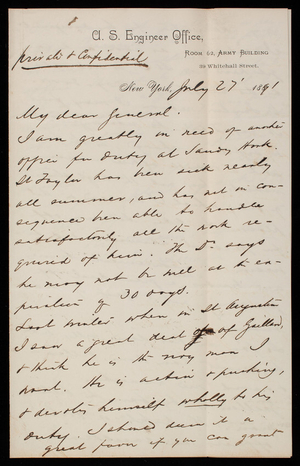 U. S. Engineer Office,
Room 62, Army Building
39 Whitehall Street.
Private & Confidential
New York, July 27' 1891
My dear General.
I am greatly in need of another
officer for duty at Sandy Hook.
Lt Taylor has been sick nearly
all summer, and has not in con-
sequence been able to handle
satisfactorily all the work re-
quired of him. The Dr. says
he may not be well at the ex-
piration of 30 days.
Last winter when in St Augustine
I saw a great deal of Gaillard,
& think he is the very man I
want. He is active & pushing,
& devotes himself wholly to his
duty. I should deem it a
great favor if you can grant